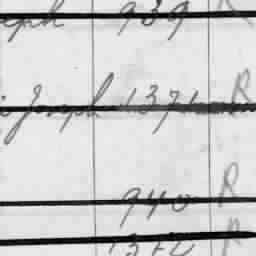 eph 939 R
Joseph 1371 R
940 R
R